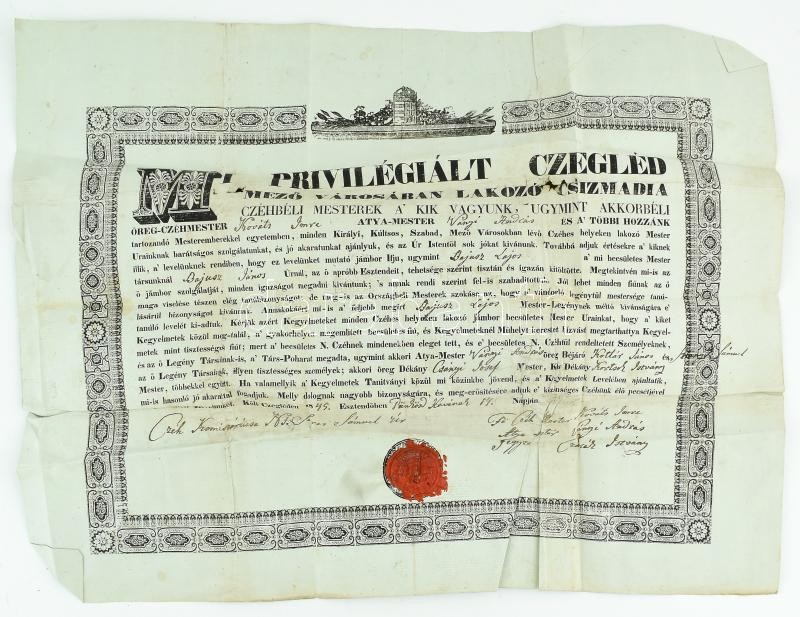 MI, PRIVILÉGIÁLT CZEGLÉD
MEZŐ VÁROSÁBAN LAKOZÓ CSIZMADIA
CZÉHBÉLI MESTEREK A' KIK VAGYUNK, ÚGYMINT AKKORBÉLI
ÖREG-CZÉHMESTER Kováts Imre ATYA-MESTER Várgyi András ÉS A' TÖBBI HOZZÁNK
tartozandó Mesteremberekkel egyetemben, minden Királyi, Kűltsos, Szabad, Mező Városokban lévő Czéhes helyeken lakozó Mester
Urainknak barátságos szolgálatunkat, és jó akaratunkat ajánlyuk, és az Úr Istentől sok jókat kivánunk. Továbbá adjuk értésekre a' kiknek
illik, a' levelünknek rendiben, hogy ez levelünket mutató jámbor Ifju, ugymint Bajusz Lajos a' mi becsületes Mester
társunknál Bajusz János Úrnál, az ő apróbb Esztendeit, tehetsége szerint tisztán és igazán kitöltötte. Megtekintvén mi-is az
ő jámbor szolgálatját, minden igazságot megadni kivántunk; 's annak rendi szerint fel-is szabadítottuk. Jól lehet minden fiúnak az ő
maga viselése tészen elég tanúbizonyságot: de még-is az Országbeli Mesterek szokása az, hogy a' vándorló legénytúl mestersége tanú-
lásáról bizonyságot kivánnak. Annakokáért mi-is a' feljebb megírt Bajusz Lajos Mester-Legénynek méltó kivánságira e'
tanuló levelét ki-adtuk. Kérjük azért Kegyelmeteket minden Czéhes helyeken lakozó jámbor becsületes Mester Urainkat, hogy a' kiket
Kegyelmetek közül meg-talál, a' gyakorhelyen megemlített becsületes fiú, és Kegyelmeteknél Műhelyt kereset lízvást megtarthatya Kegyel-
metek mint tisztességes fiút; mert a' becsületes N. Czéhnek mindenekben eleget tett, és e' becsületes N. Czéhtűl rendeltetett Személyeknek,
és az ő Legény Társainak-is, a' Társ-Poharat megadta, ugymint akkori Atya-Mester Várgyi András öreg Bejáró Kollár János és,
az ő Legény Társainak, illyen tisztességes személyek; akkori öreg Dékány Csányi Josef Mester, Kis Dékány István
Mester, többekkel együtt. Ha valamellyik a' Kegyelmetek Tanitványi közül mi közinkbe jövend, és a' Kegyelmetek Levelében ajánltatik,
mi-is hasonló jó akarattal fogadjuk. Melly dolognak nagyobb bizonyságára, és meg-erősítésére adjuk e' közönséges Czéhünk élő pecsétjével
45. Esztendőben Pünkösd Havának 14. Napján
Czéh Komissáriusa Sámuel
Fő Czéh Mester Kováts Imre
Atya mester Várgyi András
Jegyző István